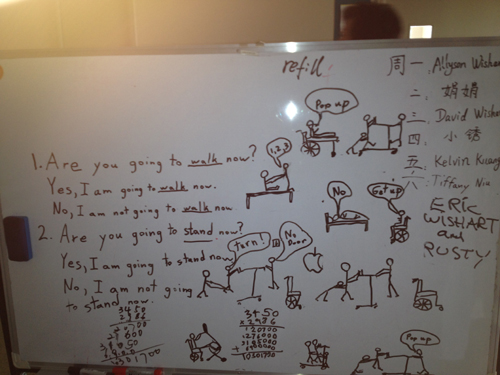 refill
周一. Allyson Wishar
二. 娟娟
三. David Wishar
四. 小锈
五. Kelvin Kuang
六. Tiffany Niu
ERIC
WISHART
and
RUSTY
1. Are you going to walk now?
Yes, I am going to walk now.
No, I am not going to walk now
2. Are you going to stand now?
Yes, I am going to stand now
No, I am not going
to stand now.
Pop up
1,2,3
No
Get up
Turn!
No
Door
3450
x 2986
Pop up